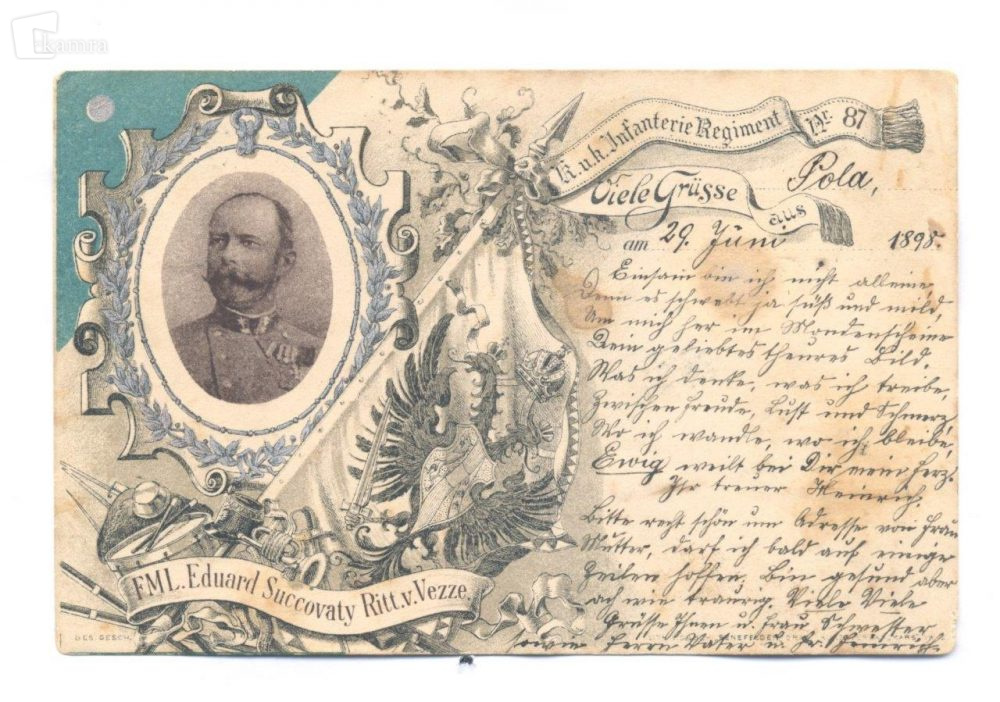 kamra
K.u.k. Infanterie Regiment Nr. 87
Viele Grüsse aus Pola,
am 29. Juni 1898.
Einsam bin ich nicht alleine
Denn es schwebt ja süß und mild,
Um mich her im Mondenscheine
Dein geliebtes theures Bild.
Was ich denke, was ich treibe,
Zwischen Freude, Lust und Schmerz
Wo ich wandle, wo ich bleibe,
Ewig weilt bei Dir mein Herz.
Ihr treuer Heinrich.
Bitte recht schön um Adresse von Frau
Mutter, darf ich bald auf einige
Zeilen hoffen. Bin gesund aber
ach wie traurig. Viele Viele
Grüsse Ihnen u. Frau Schwester
sowie Herrn Vater u.
FML. Eduard Succovaty Ritt. v. Vezze.
GES. GESCH.